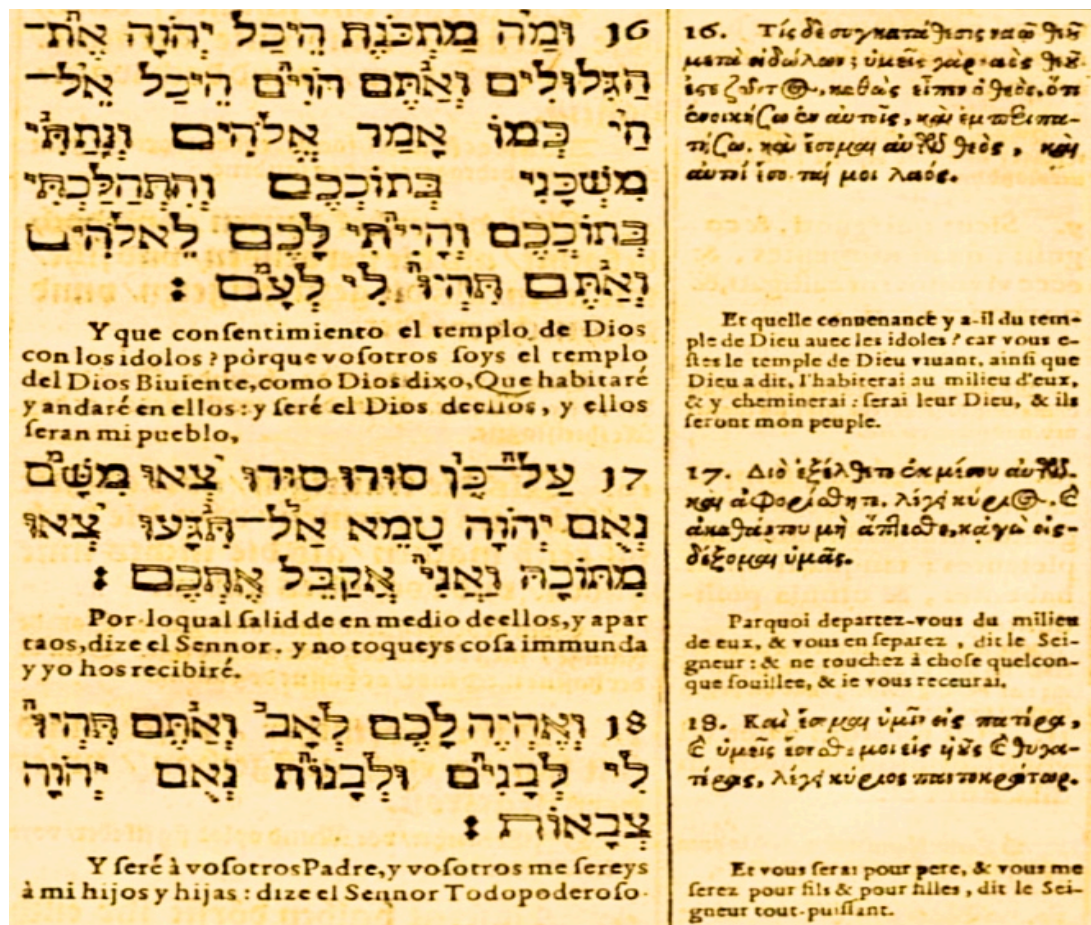 16 וּמַה מַתְכֹּנֶת הֵיכַל יְהֹוָה אֶת־
הַגִּלּוּלִים וְאַתֶּם הֹוִים הֵיכַל אֵל־
חַי כְּמוֹ אָמַר אֱלֹהִים וְנָתַתִּי
מִשְׁכָּנִי בְּתוֹכְכֶם וְהִתְהַלַּכְתִּי
בְּתוֹכְכֶם וְהָיִיתִי לָכֶם לֵאלֹהִים
וְאַתֶּם תִּהְיוּ לִי לְעָם :
Y que conſentimiento el templo de Dios
con los idolos ? porque voſotros ſoys el templo
del Dios Biuiente, como Dios dixo, Que habitaré
y andaré en ellos : y ſeré el Dios deellos, y ellos
ſeran mi pueblo,
17 עַל־כֵּן סוּרוּ סוּרוּ צְאוּ מִשָּׁם
נְאֻם יְהֹוָה טָמֵא אַל־תִּגָּעוּ צְאוּ
מִתּוֹכָהּ וַאֲנִי אֲקַבֵּל אֶתְכֶם :
Por loqual ſalid de en medio deellos, y apar
taos, dize el Sennor. y no toqueys coſa immunda
y yo hos recibiré.
18 וְאֶהְיֶה לָכֶם לְאָב וְאַתֶּם תִּהְיוּ
לִי לְבָנִים וּלְבָנוֹת נְאֻם יְהֹוָה
צְבָאוֹת :
Y ſeré à voſotros Padre, y voſotros me ſereys
à mi hijos y hijas : dize el Sennor Todopoderoſo.
16. Τίς δὲ συγκατάθεσις ναῷ θεοῦ
μετὰ εἰδώλων; ὑμεῖς γὰρ ναὸς θεοῦ
ἐςε ζῶντος, καθὼς εἶπεν ὁ θεὸς, ὅτι
ἐνοικήσω ἐν αὐτοῖς, καὶ ἐμπεριπα-
τήσω. καὶ ἔσομαι αὐτῶν θεὸς, καὶ
αὐτοί ἔσονταί μοι λαός.
Et quelle conuenance y a-il du tem-
ple de Dieu auec les idoles ? car vous e-
ſtes le temple de Dieu viuant, ainſi que
Dieu a dit, I'habiterai au milieu d'eux,
& y cheminerai : ſerai leur Dieu, & ils
ſeront mon peuple.
17. Διὸ ἐξέλθετε ἐκ μέσου αὐτῶν.
καὶ ἀφορίσθητε, λέγει κύριος. καὶ
ἀκαθάρτου μὴ ἅπτεσθε, κᾀγὼ εἰσ-
δέξομαι ὑμᾶς.
Parquoi departez-vous du milieu
de eux, & vous en ſeparez, dit le Sei-
gneur : & ne touchez à choſe quelcon-
que ſouillee, & ie vous receurai.
18. Καὶ ἔσομαι ὑμῖν εἰς πατέρα,
καὶ ὑμεῖς ἔσεσθέ μοι εἰς υἱοὺς καὶ θυγα-
τέρας, λέγει κύριος παντοκράτωρ.
Et vous ſerai pour pere, & vous me
ſerez pour fils & pour filles, dit le Sei-
gneur tout-puiſſant.